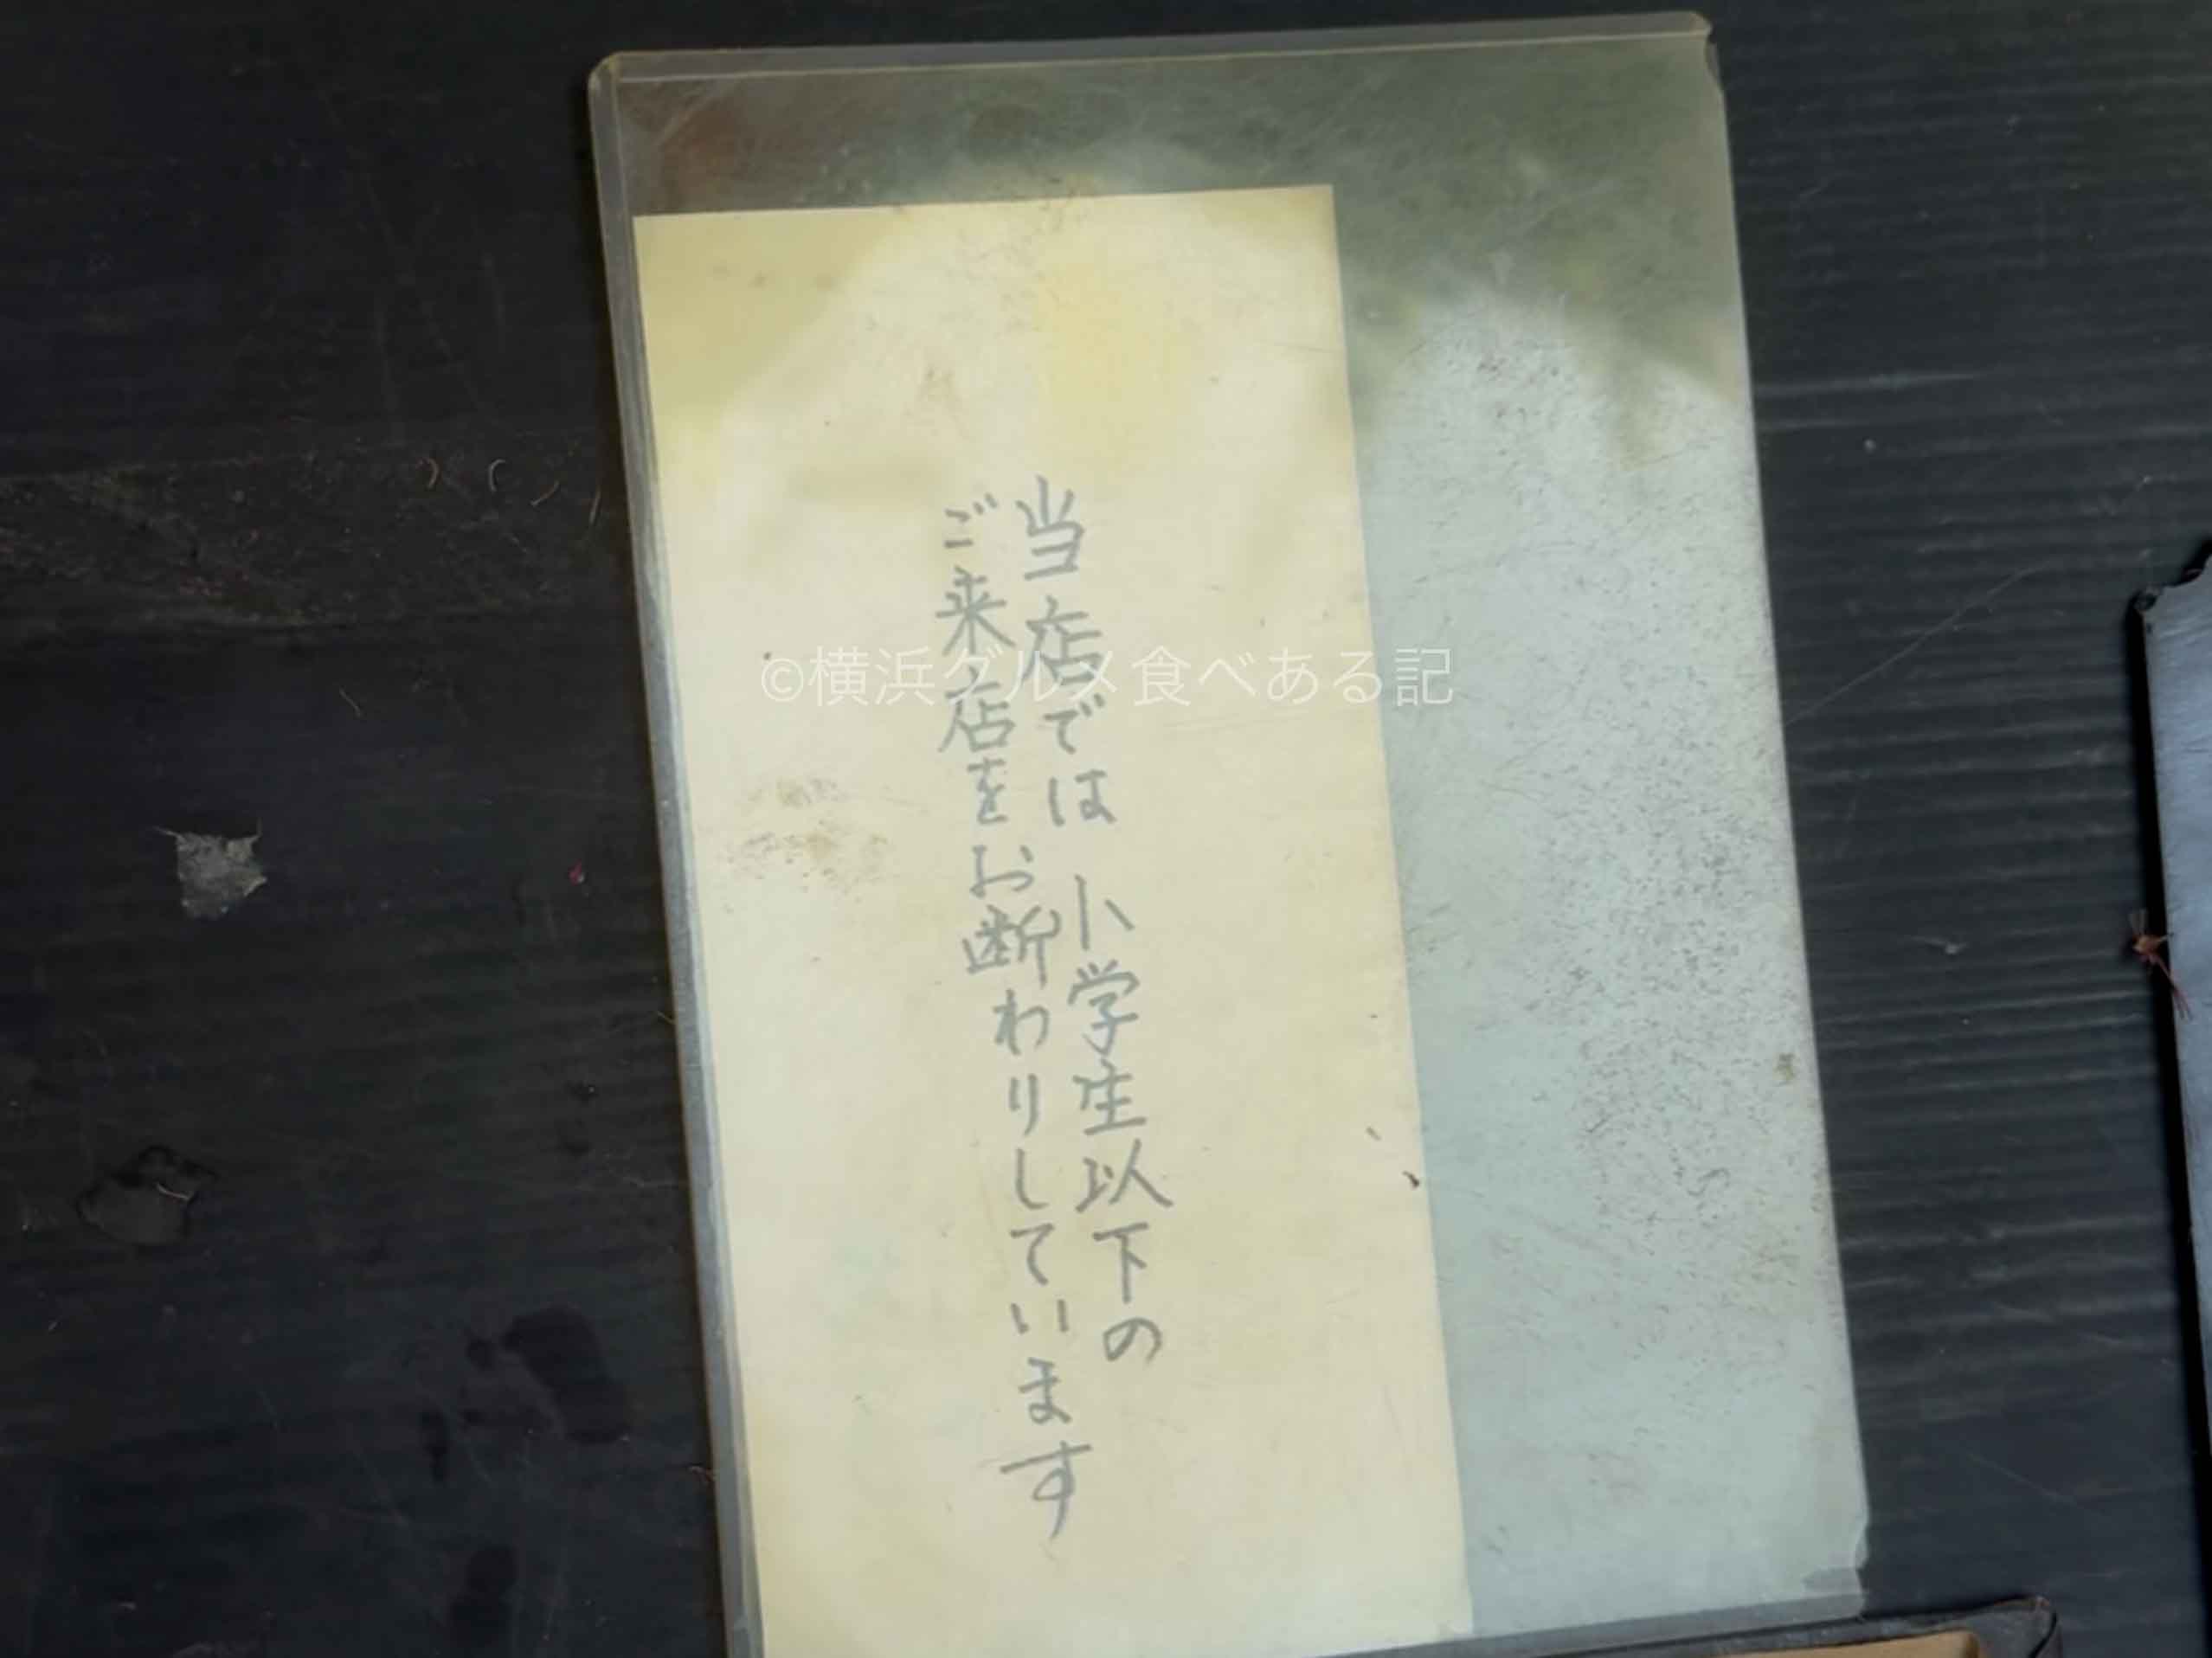 当店では 小学生以下の
ご来店をお断わりしています
©横浜グルメ食べある記